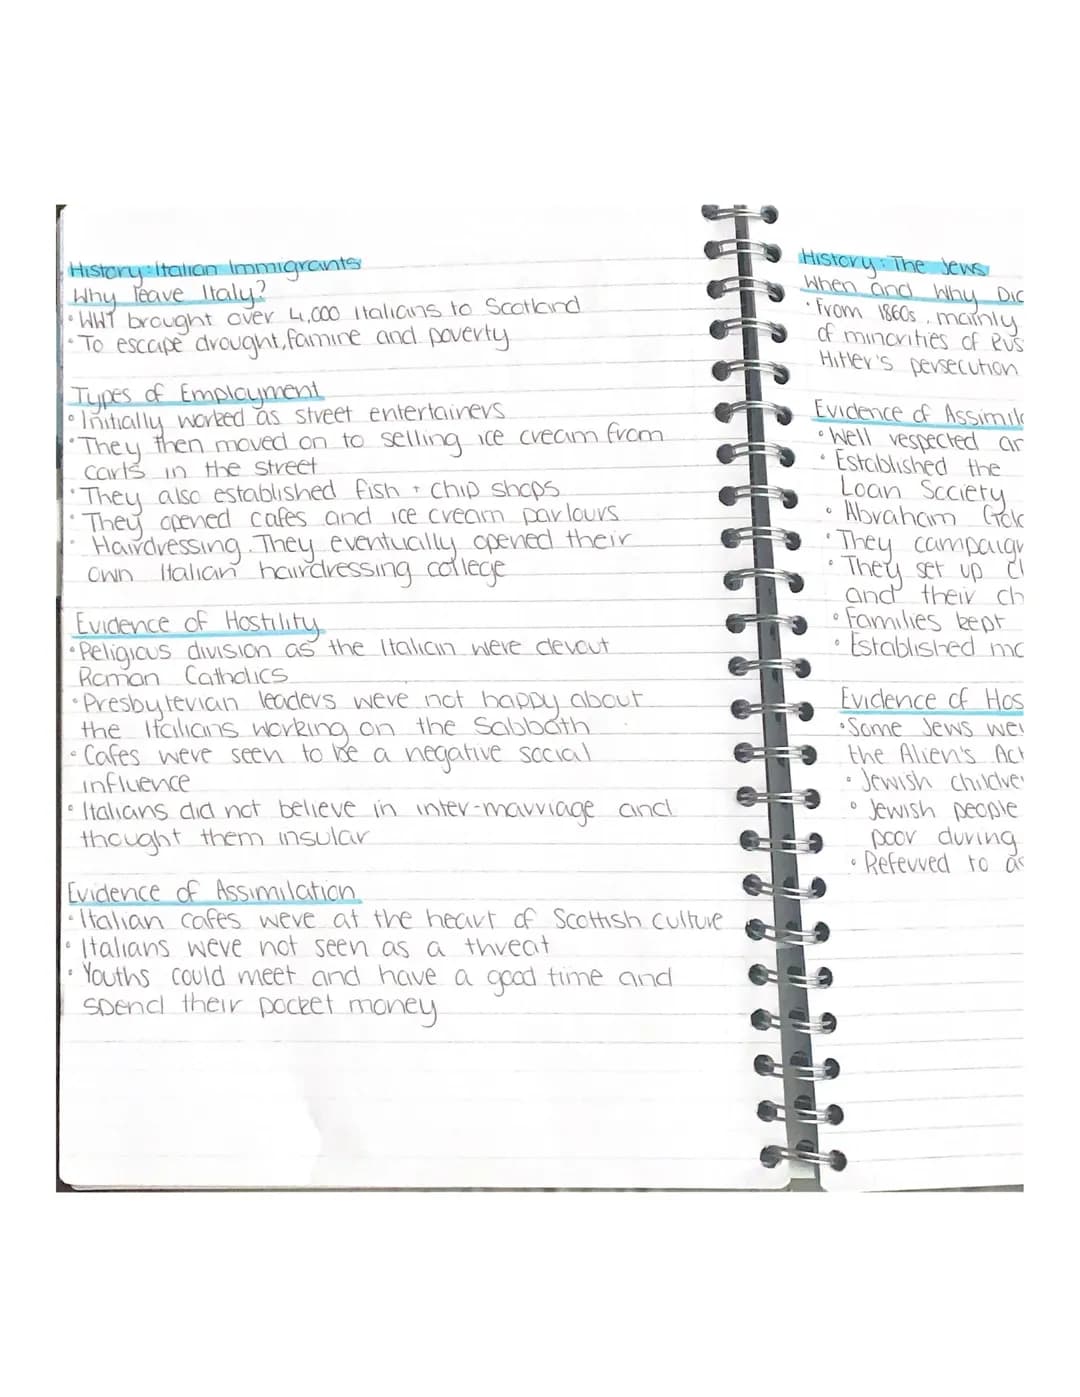 History: Italian Immigrants
Why leave Italy?
• WW1 brought over 4,000 Italians to Scotland
• To escape drought, famine and poverty
Types of Employment
• Initially worked as street entertainers
• They then moved on to selling ice cream from
carts in the street
• They also established fish + chip shops
• They opened cafes and ice cream parlours
• Hairdressing. They eventually opened their
own Italian hairdressing college
Evidence of Hostility
• Religious division as the Italian were devout
Roman Catholics
• Presbyterian leaders were not happy about
the Italians working on the Sabbath
• Cafes were seen to be a negative social
influence
• Italians did not believe in inter-marriage and
thought them insular
Evidence of Assimilation
• Italian cafes were at the heart of Scottish culture
• Italians were not seen as a threat
• Youths could meet and have a good time and
spend their pocket money
History: The Jews
When and Why Dic
• From 1860s, mainly
of minorities of Rus
Hitler's persecution
Evidence of Assimila
• Well respected an
• Established the
Loan Society
• Abraham Gold
• They campaign
• They set up cl
and their ch
• Families kept
• Established mo
Evidence of Hos
• Some Jews wer
the Alien's Act
• Jewish childrer
• Jewish people
poor during
• Referred to as